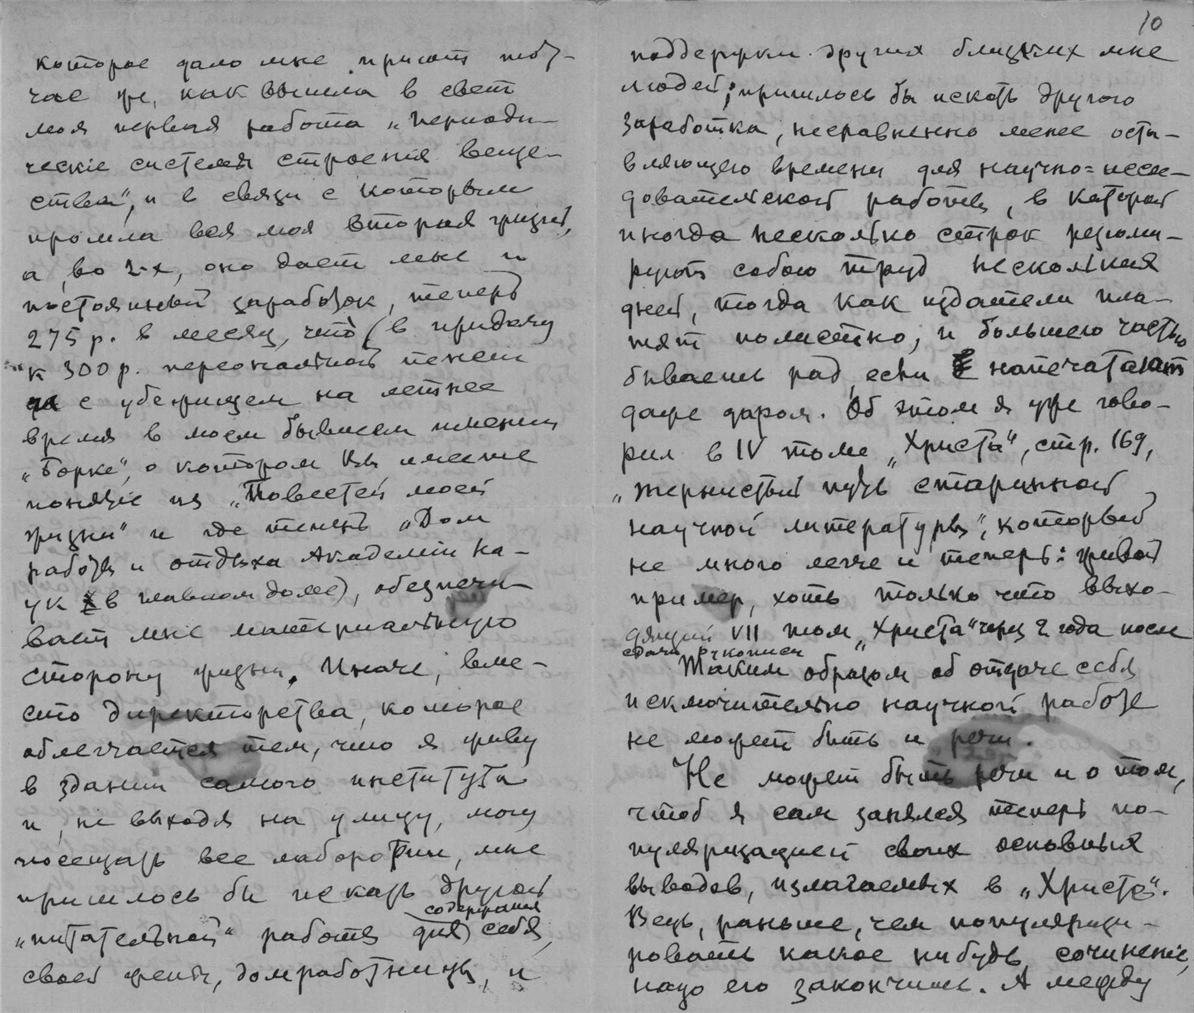 которое дало мне приют тот-
час же, как вышла в свет
моя первая работа „Периоди-
ческіе системы строенія веще-
ства", и в связи с которым
прошла вся моя вторая жизнь,
а, во 2-х, оно дает мне и
постоянный заработок, теперь
275 р. в месяц, что (в придачу
к 300 р. персональной пенсии
да с убежищем на летнее
время в моем бывшем имении
„Борке", о котором Вы имеете
понятіе из „Повестей моей
жизни" и где теперь „Дом
работы и отдыха Академіи На-
ук в главном доме), обезпечи-
вает мне матеріальную
сторону жизни. Иначе, вме-
сто директорства, которое
облегчается тем, что я живу
в здании самого института
и, не выходя на улицу, могу
посещать все лаборотріи, мне
пришлось бы искать другой
„питательной" работы для содержания себя,
своей жены, домработницы, и
10
поддержки других близких мне
людей; пришлось бы искать другого
заработка, несравненно менее оста-
вляющего времени для научно=иссле-
довательской работы, в которой
иногда несколько строк резюми-
руют собою труд нескольких
дней, тогда как издатели пла-
тят полистно, и большею частью
бываешь рад, если напечатают
даже даром. Об этом я уже гово-
рил в IV томе „Христа", стр. 169,
„Тернистый путь старинной
научной литературы", который
не много легче и теперь: живой
пример, хоть только что выхо-
дящий VII том „Христа" через 2 года после
сдачи рукописи
Таким образом об отдаче себя
исключительно научной работе
не может быть и речи.
Не может быть речи и о том,
чтоб я сам занялся теперь по-
пуляризацией своих основных
выводов, излагаемых в „Христе".
Ведь, раньше, чем популяризи-
ровать какое нибудь сочинение,
надо его закончить. А между